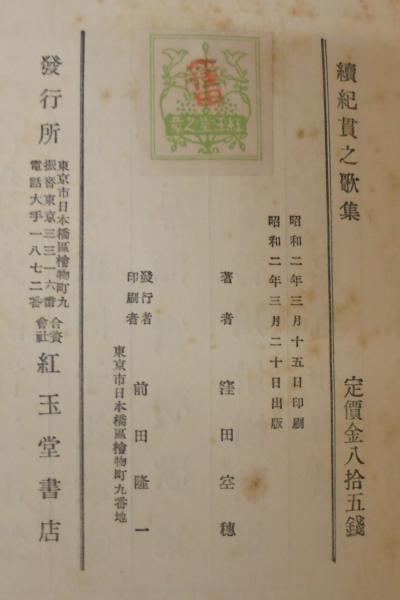 續紀貫之歌集
定價金八拾五錢
昭和二年三月十五日印刷
昭和二年三月二十日出版
著者 窪田空穗
發行者
印刷者 前田隆一
東京市日本橋區檜物町九番地
發行所
東京市日本橋區檜物町九
振替東京三三一六番
電話大手一八七二番
合資
會社 紅玉堂書店